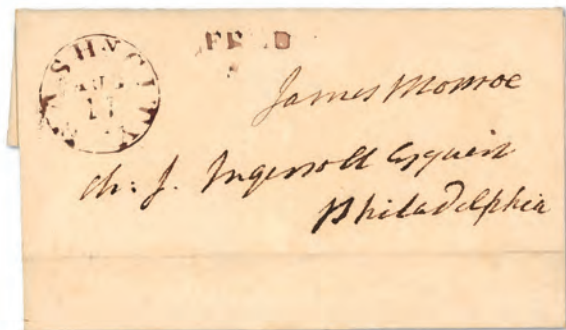 WASHN CITY
17
James Monroe
Ch: J. Ingersoll Esquire
Philadelphia